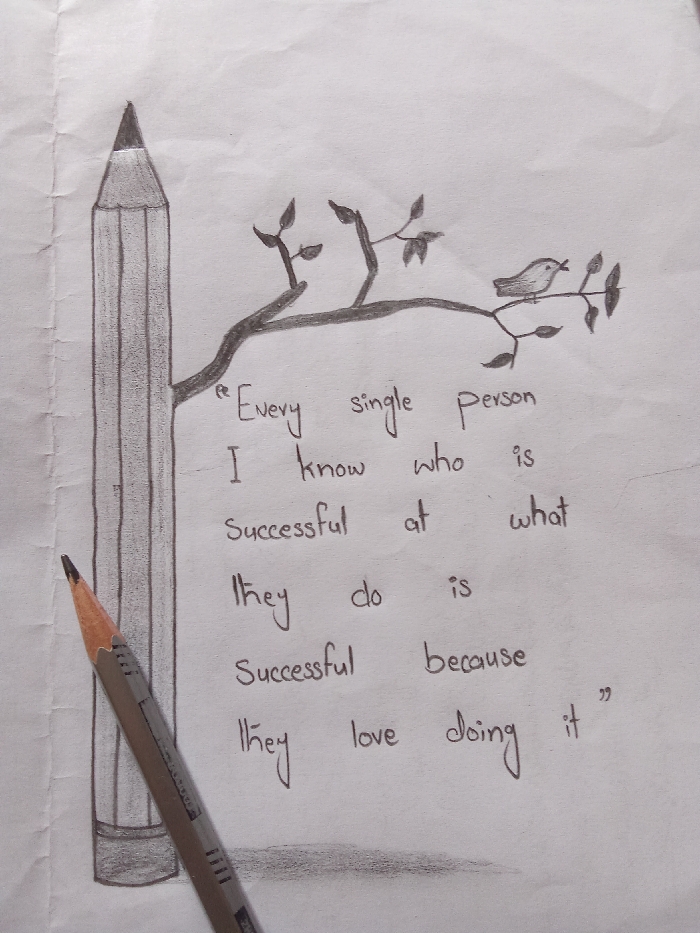 "Every single person
I know who is
successful at what
they do is
successful because
they love doing it"